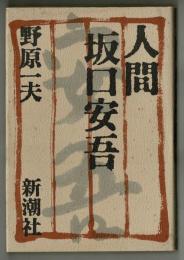 人間
坂口安吾
野原一夫
新潮社